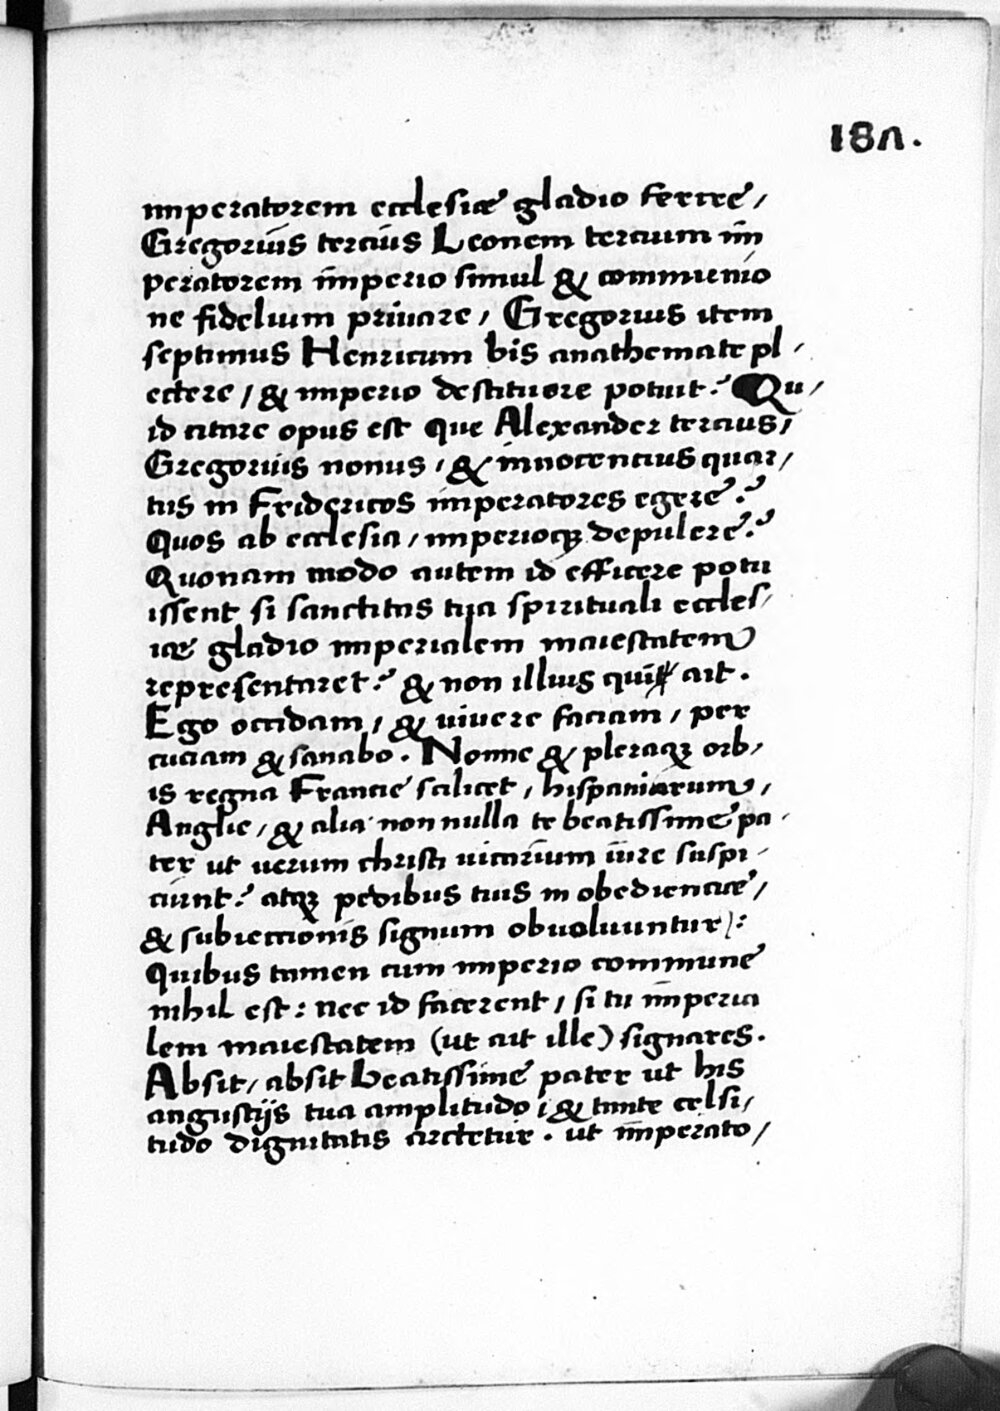 187.
imperatorem ecclesiæ gladio ferire /
Gregorius tercius Leonem tercium im
peratorem imperio simul & communio
ne fidelium priuare / Gregorius item
septimus Henricum bis anathemate pl /
ectere / & imperio destituere potuit? Qu /
id citare opus est que Alexander tercius /
Gregorius nonus / & innocencius quar /
tus in Fridericos imperatores egere?
Quos ab ecclesia / imperioqꝫ depulere?
Quonam modo autem id efficere potu
issent si sanctitas tua spirituali eccles /
iæ gladio imperialem maiestatem
representaret? & non illius qui ait.
Ego occidam / & uiuere faciam / per
cuciam & sanabo. Nonne & pleraqꝫ orb /
is regna Francie scilicet / hispaniarum /
Anglie / & alia nonnulla te beatissime pa /
ter ut uerum christi uicarium iure suspi /
ciunt? atqꝫ pedibus tuis in obedienciæ /
& subiectionis signum obuoluuntur):
Quibus tamen cum imperio commune
nihil est: nec id facerent / si tu imperia
lem maiestatem (ut ait ille) signares.
Absit / absit beatissime pater ut his
angustijs tua amplitudo / & tante celsi /
tudo dignitatis arctetur. ut imperato /